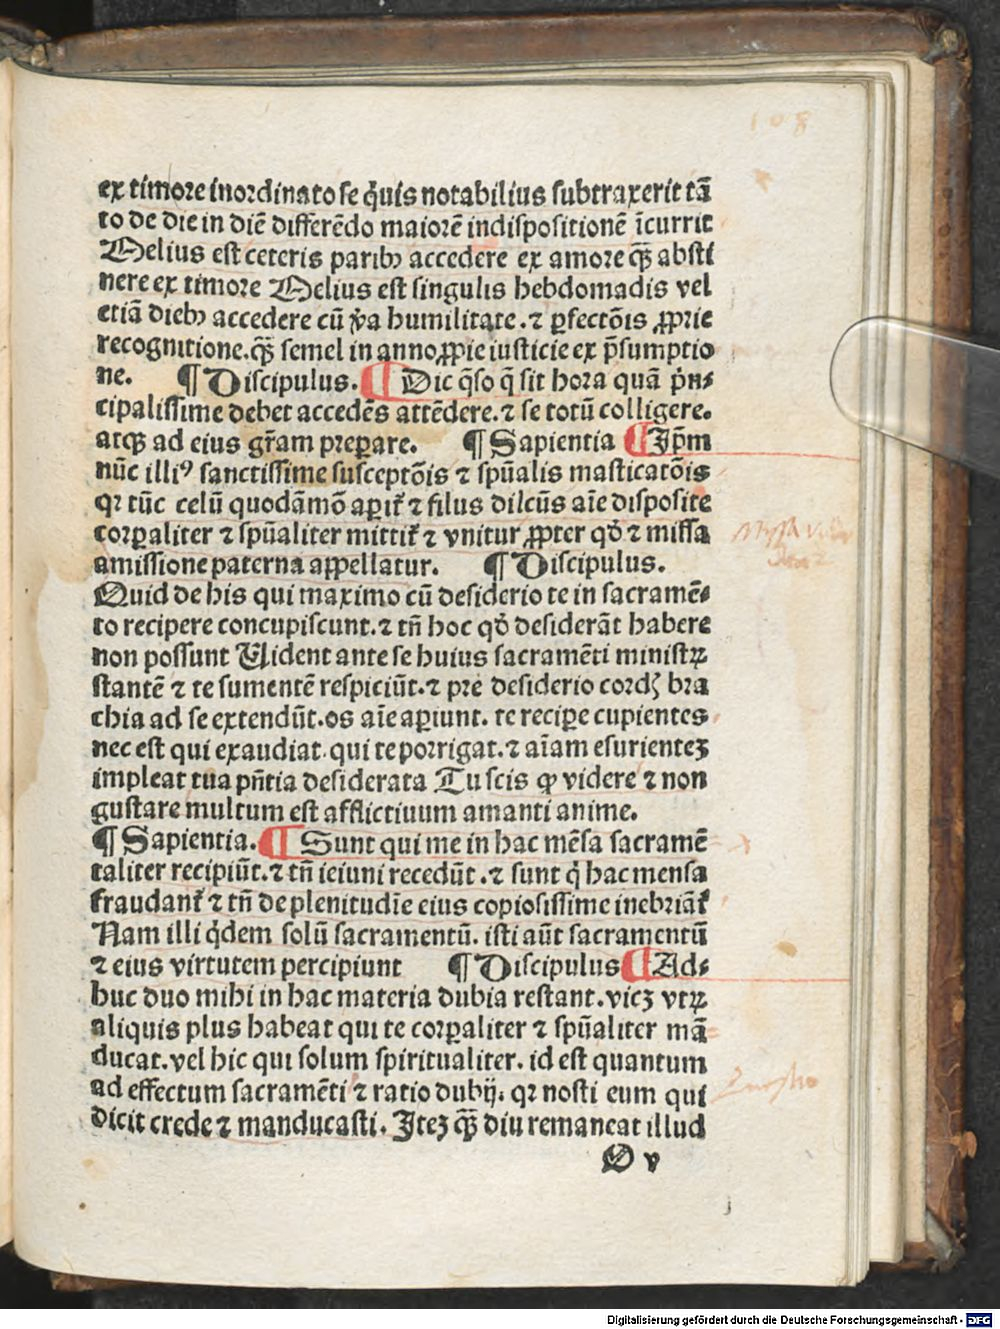 108
ex timore inordinato se q̇uis notabilius subtraxerit tā
to de die in diē differēdo maiorē indispositionē īcurrit
Melius est ceteris paribꝫ accedere ex amore qꝫ̄ absti
nere ex timore Melius est singulis hebdomadis vel
etiā diebꝫ accedere cū v̇a humilitate. ⁊ ꝑfectōis ꝓprie
recognitione. qꝫ̄ semel in anno ꝓpie iusticie ex p̄sumptio
ne. ¶ Discipulus. ¶ Dic q̄so q̄ sit hora quā ṗn⸗
cipalissime debet accedēs attēdere. ⁊ se totū colligere.
atqꝫ ad eius gr̄am preꝑare. ¶ Sapientia ¶ Ip̄m
nūc illiꝰ sanctissime susceptōis ⁊ spūalis masticatōis
qꝛ tūc celū quodāmō aꝑit᷑ ⁊ filus dilcūs aīe disposite
corꝑaliter ⁊ spūaliter mittit᷑ ⁊ vnitur ꝓpter qđ ⁊ missa
amissione paterna aꝓpellatur. ¶ Discipulus.
Quid de his qui maximo cū desiderio te in sacramē⸗
to recipere concupiscunt. ⁊ tn̄ hoc qđ desiderāt habere
non possunt Uident ante se huius sacramēti ministꝝ
stantē ⁊ te sumentē respiciūt. ⁊ pre desiderio cordꝭ bra
chia ad se extendūt. os aīe aꝑiunt. te reciꝑe cupientes
nec est qui exaudiat. qui te porrigat. ⁊ aīam esurienteꝫ
impleat tua pn̄tia desiderata Tu scis ꝙ videre ⁊ non
gustare multum est afflictiuum amanti anime.
¶ Sapientia. ¶ Sunt qui me in hac mēsa sacramē
taliter recipiūt. ⁊ tn̄ ieiuni recedūt. ⁊ sunt q̇ hac mensa
fraudant᷑ ⁊ tn̄ de plenitudīe eius copiosissime inebriāt᷑
Nam illi q̇dem solū sacramentū. isti aūt sacramentū
⁊ eius virtutem percipiunt ¶ Discipulus ¶ Ad⸗
huc duo mihi in hac materia dubia restant. vicꝫ vtꝝ
aliquis plus habeat qui te corꝑaliter ⁊ spūaliter mā
ducat. vel hic qui solum spiritualiter. id est quantum
ad effectum sacramēti ⁊ ratio dubij. qꝛ nosti eum qui
dicit crede ⁊ manducasti. Iteꝫ qꝫ̄ diu remaneat illud
O v
Digitalisierung gefördert durch die Deutsche Forschungsgemeinschaft - DFG